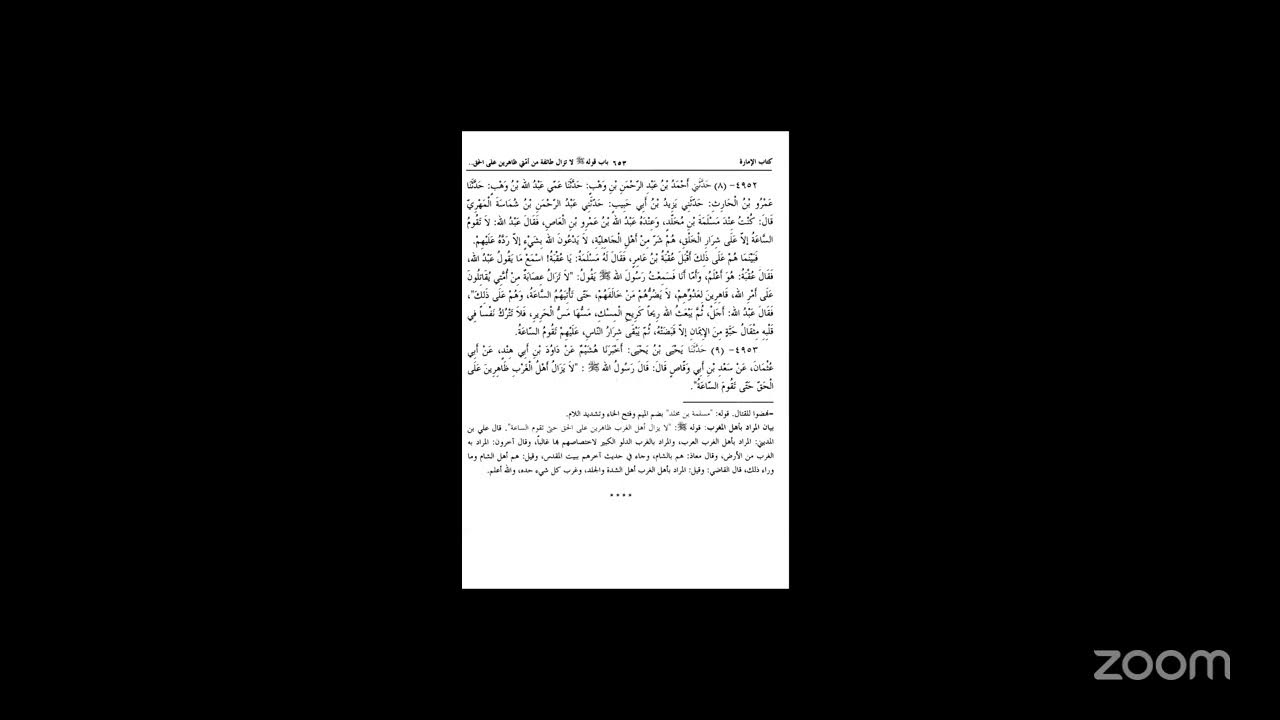 كتاب الإمارة
٦٥٣
باب قوله ﷺ لا تزال طائفة من أمتي ظاهرين على الحق..
٤٩٥٢- (٨) حَدَّثَنِي أَحْمَدُ بْنُ عَبْدِ الرَّحْمَنِ بْنِ وَهْبٍ: حَدَّثَنَا عَمِّي عَبْدُ الله بْنُ وَهْبٍ: حَدَّثَنَا
عَمْرُو بْنُ الْحَارِثِ: حَدَّثَنِي يَزِيدُ بْنُ أَبِي حَبِيبٍ: حَدَّثَنِي عَبْدُ الرَّحْمَنِ بْنُ شُمَاسَةَ الْمَهْرِيُّ
قَالَ: كُنْتُ عِنْدَ مَسْلَمَةَ بْنِ مُخَلَّدٍ، وَعِنْدَهُ عَبْدُ الله بْنُ عَمْرِو بْنِ الْعَاصِ، فَقَالَ عَبْدُ الله: لَا تَقُومُ
السَّاعَةُ إِلاَّ عَلَى شِرَارِ الْخَلْقِ، هُمْ شَرٌّ مِنْ أَهْلِ الْجَاهِلِيَّةِ، لَا يَدْعُونَ الله بِشَيْءٍ إِلاَّ رَدَّهُ عَلَيْهِمْ.
فَبَيْنَمَا هُمْ عَلَى ذَلِكَ أَقْبَلَ عُقْبَةُ بْنُ عَامِرٍ، فَقَالَ لَهُ مَسْلَمَةُ: يَا عُقْبَةُ! اسْمَعْ مَا يَقُولُ عَبْدُ الله،
فَقَالَ عُقْبَةُ: هُوَ أَعْلَمُ، وَأَمَّا أَنَا فَسَمِعْتُ رَسُولَ الله ﷺ يَقُولُ: "لَا تَزَالُ عِصَابَةٌ مِنْ أُمَّتِي يُقَاتِلُونَ
عَلَى أَمْرِ الله، قَاهِرِينَ لِعَدُوِّهِمْ، لَا يَضُرُّهُمْ مَنْ خَالَفَهُمْ، حَتَّى تَأْتِيَهُمُ السَّاعَةُ، وَهُمْ عَلَى ذَلِكَ"،
فَقَالَ عَبْدُ الله: أَجَلْ، ثُمَّ يَبْعَثُ الله رِيحاً كَرِيحِ الْمِسْكِ، مَسُّهَا مَسُّ الْحَرِيرِ، فَلَا تَتْرُكُ نَفْساً فِي
قَلْبِهِ مِثْقَالُ حَبَّةٍ مِنَ الإِيمَانِ إِلاَّ قَبَضَتْهُ، ثُمَّ يَبْقَى شِرَارُ النَّاسِ، عَلَيْهِمْ تَقُومُ السَّاعَةُ.
٤٩٥٣- (٩) حَدَّثَنَا يَحْيَى بْنُ يَحْيَى: أَخْبَرَنَا هُشَيْمٌ عَنْ دَاوُدَ بْنِ أَبِي هِنْدٍ، عَنْ أَبِي
عُثْمَانَ، عَنْ سَعْدِ بْنِ أَبِي وَقَّاصٍ قَالَ: قَالَ رَسُولُ الله ﷺ: "لَا يَزَالُ أَهْلُ الْغَرْبِ ظَاهِرِينَ عَلَى
الْحَقِّ حَتَّى تَقُومَ السَّاعَةُ".
=نهضوا للقتال. قوله: "مسلمة بن مخلد" بضم الميم وفتح الخاء وتشديد اللام.
بيان المراد بأهل المغرب: قوله ﷺ: "لا يزال أهل الغرب ظاهرين على الحق حتى تقوم الساعة". قال علي بن
المديني: المراد بأهل الغرب العرب، والمراد بالغرب الدلو الكبير لاختصاصهم بها غالباً، وقال آخرون: المراد به
الغرب من الأرض، وقال معاذ: هم بالشام، وجاء في حديث آخرهم ببيت المقدس، وقيل: هم أهل الشام وما
وراء ذلك، قال القاضي: وقيل: المراد بأهل الغرب أهل الشدة والجلد، وغرب كل شيء حده، والله أعلم.
* * * *
zoom